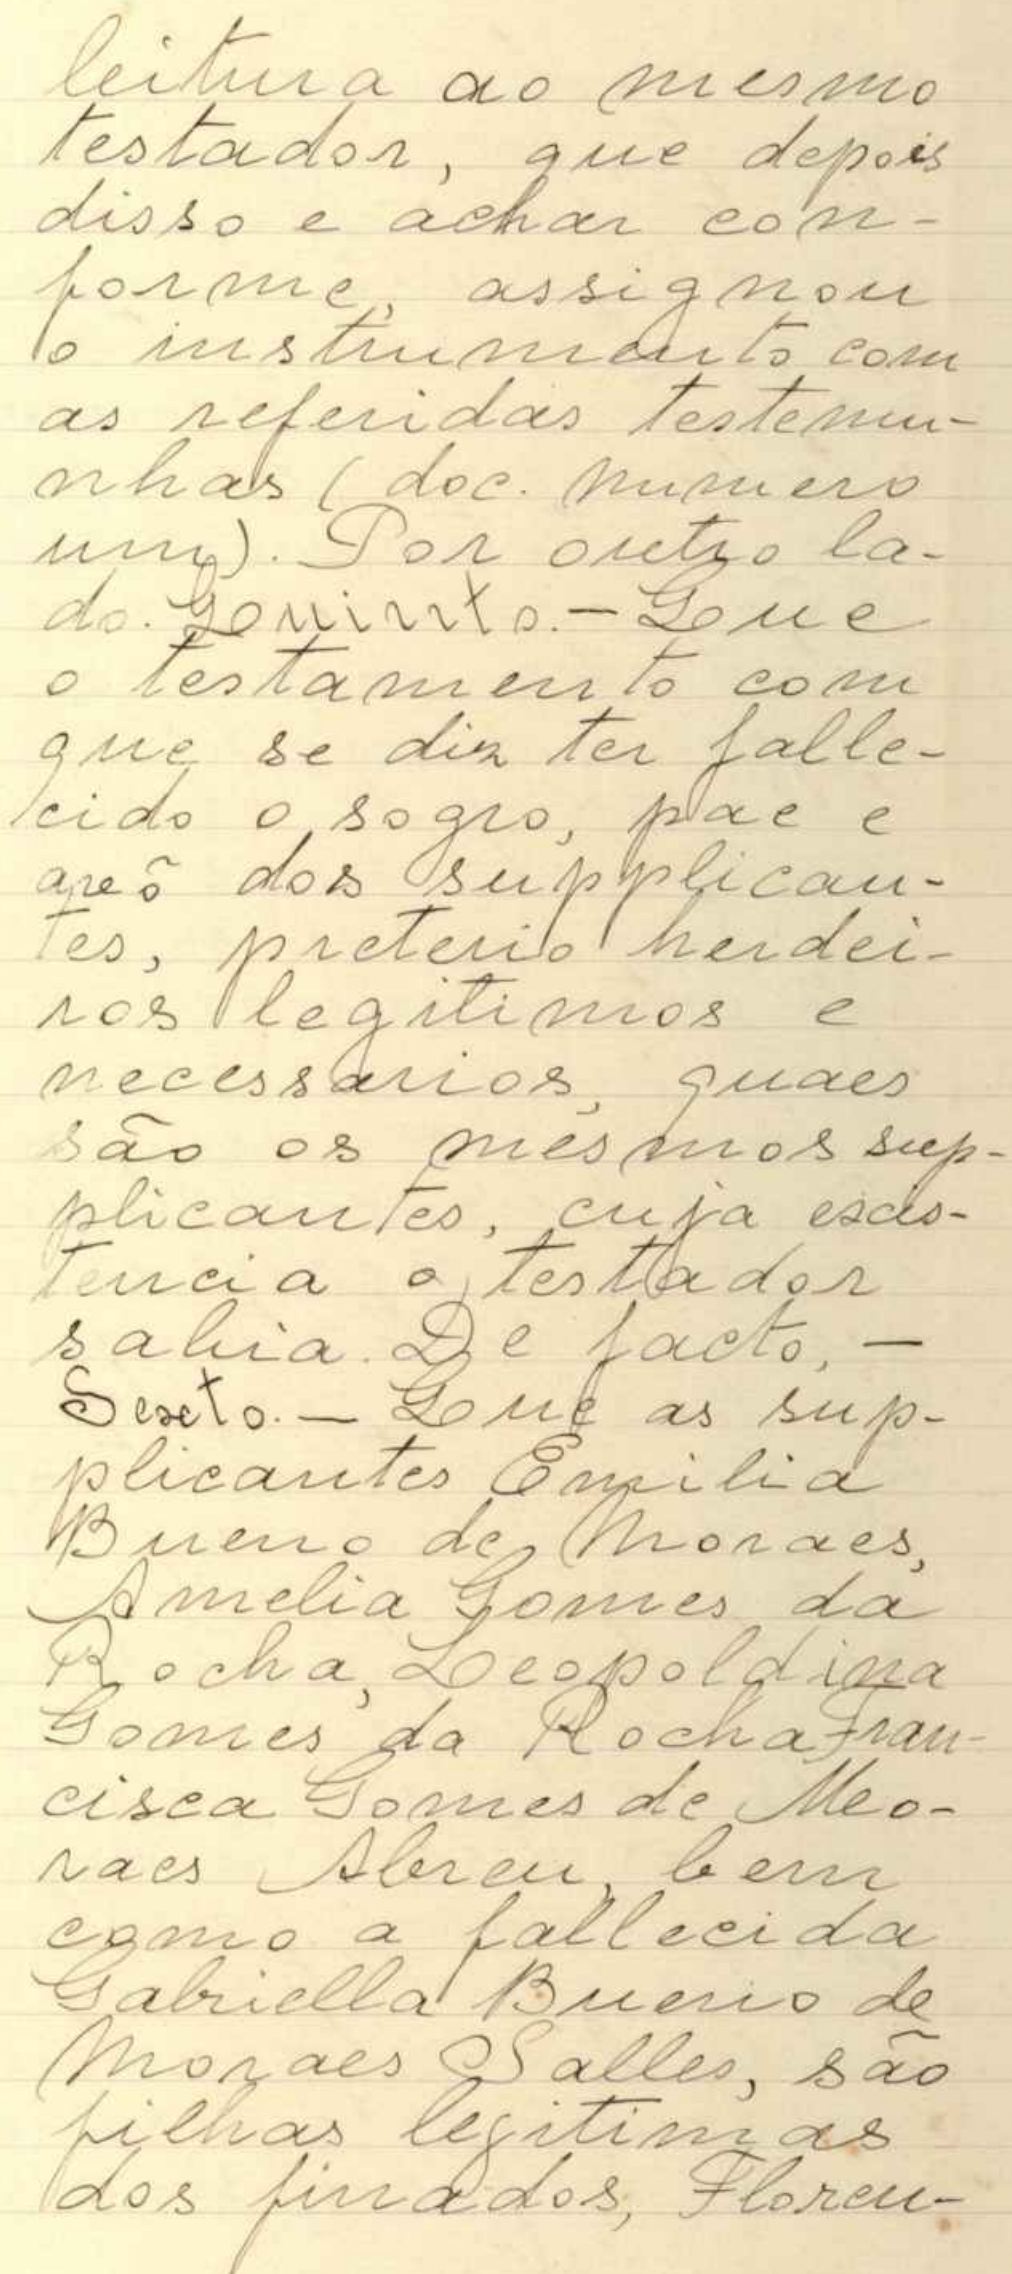 leitura ao mesmo
testador, que depois
disso e achar con-
forme, assignou
o instrumento com
as referidas testemu-
nhas (doc. numero
um). Por outro la-
do. Quinto. — Que
o testamento com
que se diz ter falle-
cido o sogro, pae e
avô dos supplican-
tes, preterio herdei-
ros legitimos e
necessarios, quaes
são os mesmos sup-
plicantes, cuja exis-
tencia o testador
sabia. De facto, —
Sexto. — Que as sup-
plicantes Emilia
Bueno de Moraes,
Amelia Gomes da
Rocha, Leopoldina
Gomes da Rocha Fran-
cisca Gomes de Mo-
raes Abreu, bem
como a fallecida
Gabriella Bueno de
Moraes Salles, são
filhas legitimas
dos finados, Floren-